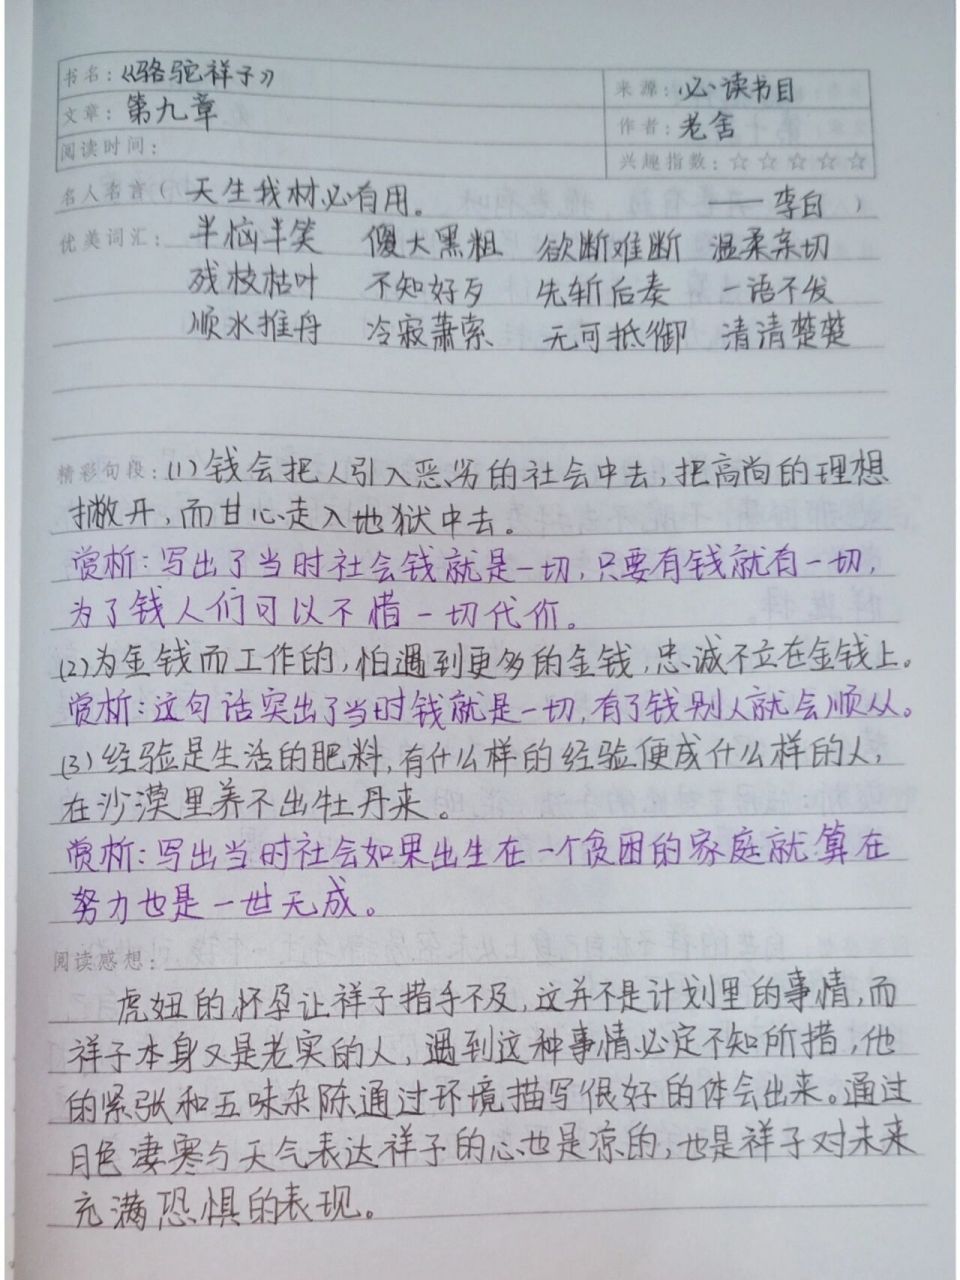 书名：《骆驼祥子》
来源：必读书目
文章：第九章
作者：老舍
阅读时间：
兴趣指数：☆☆☆☆☆
名人名言（天生我材必有用。——李白）
优美词汇：半恼半笑 傻大黑粗 欲断难断 温柔亲切
残枝枯叶 不知好歹 先斩后奏 一语不发
顺水推舟 冷寂萧索 无可抵御 清清楚楚
精彩句段：(1)钱会把人引入恶劣的社会中去，把高尚的理想
撇开，而甘心走入地狱中去。
赏析：写出了当时社会钱就是一切，只要有钱就有一切，
为了钱人们可以不惜一切代价。
(2)为金钱而工作的，怕遇到更多的金钱，忠诚不立在金钱上。
赏析：这句话突出了当时钱就是一切，有了钱别人就会顺从。
(3)经验是生活的肥料，有什么样的经验便成什么样的人，
在沙漠里养不出牡丹来。
赏析：写出当时社会如果出生在一个贫困的家庭就算在
努力也是一世无成。
阅读感想：
虎妞的怀孕让祥子措手不及，这并不是计划里的事情，而
祥子本身又是老实的人，遇到这种事情必定不知所措，他
的紧张和五味杂陈通过环境描写很好的体会出来。通过
月色凄寒与天气表达祥子的心也是凉的，也是祥子对未来
充满恐惧的表现。